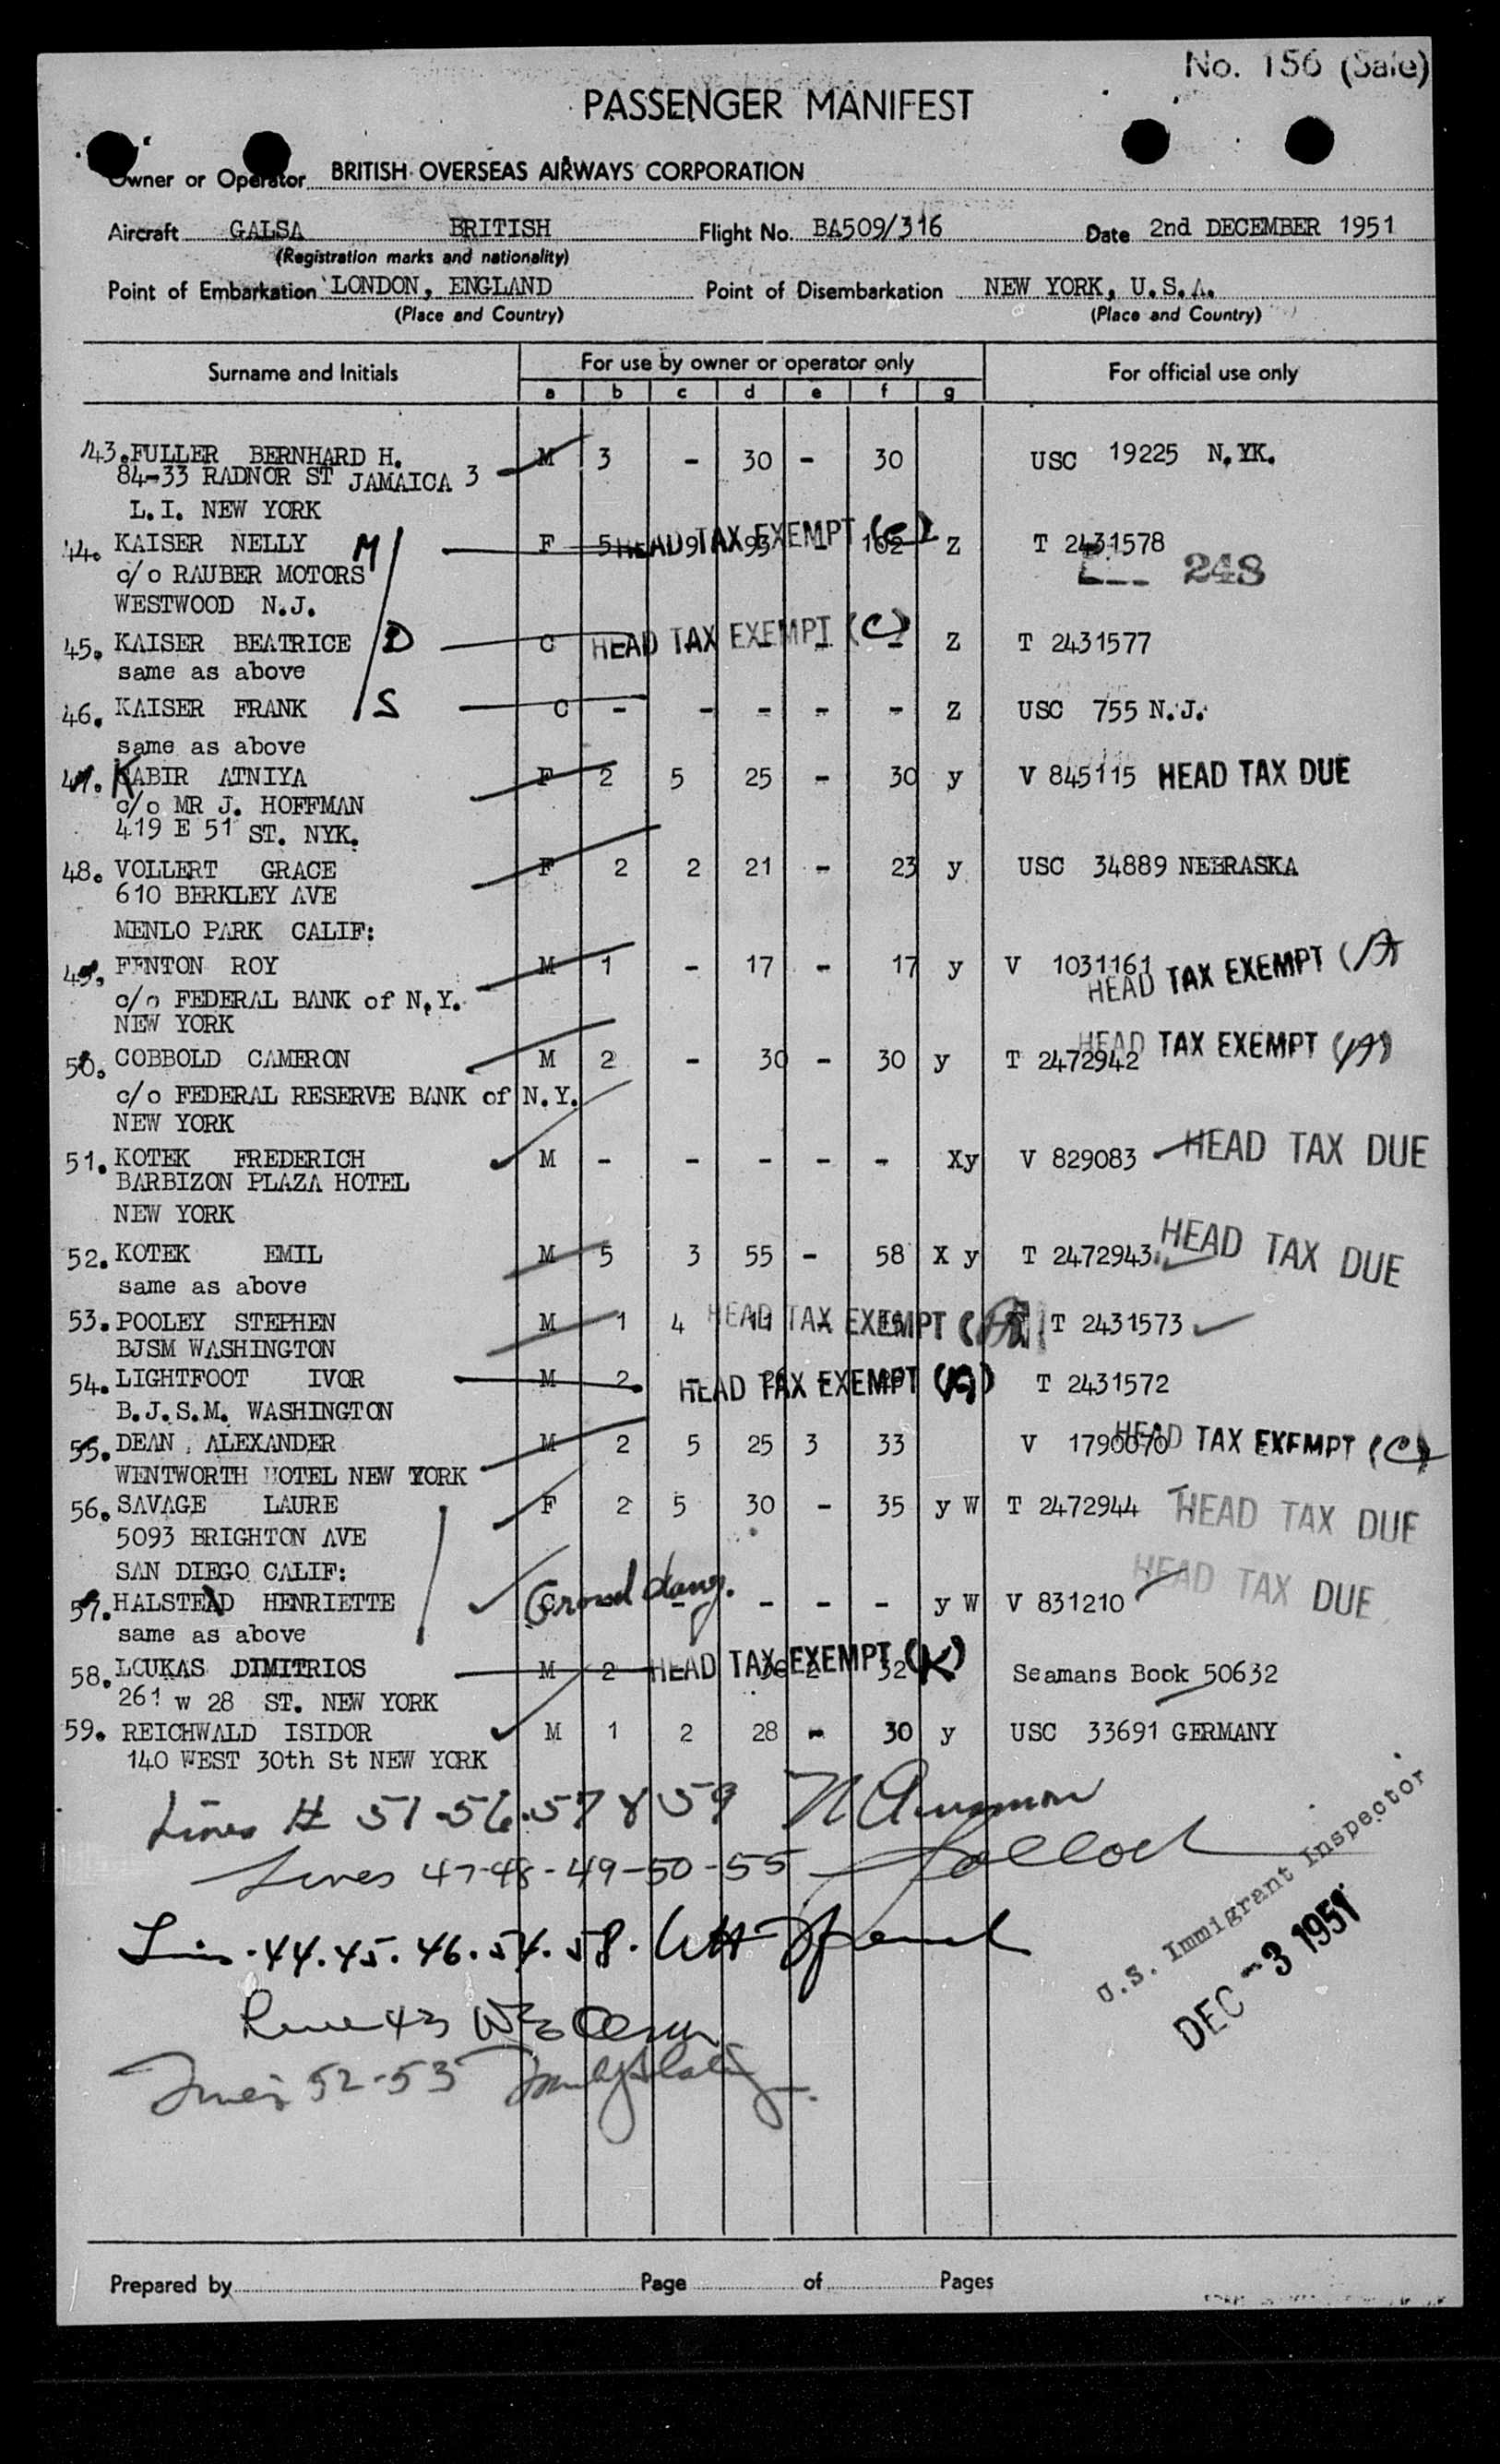 No. 156 (Sale)
PASSENGER MANIFEST
Owner or Operator BRITISH OVERSEAS AIRWAYS CORPORATION
Aircraft GALSA BRITISH Flight No. BA509/316 Date 2nd DECEMBER 1951
(Registration marks and nationality)
Point of Embarkation LONDON, ENGLAND Point of Disembarkation NEW YORK, U.S.A.
(Place and Country) (Place and Country)
Surname and Initials For use by owner or operator only For official use only
a b c d e f g
43. FULLER BERNHARD H. M 3 - 30 - 30 USC 19225 N.YK.
84-33 RADNOR ST JAMAICA 3
L.I. NEW YORK
44. KAISER NELLY M F 5 9 93 - 102 Z T 2431578
HEAD TAX EXEMPT (C)
c/o RAUBER MOTORS 248
WESTWOOD N.J.
45. KAISER BEATRICE D C HEAD TAX EXEMPT (C) - Z T 2431577
same as above
46. KAISER FRANK S C - - - - - Z USC 755 N.J.
same as above
47. KABIR ATNIYA F 2 5 25 - 30 y V 845115 HEAD TAX DUE
c/o MR J. HOFFMAN
419 E 51 ST. NYK.
48. VOLLERT GRACE F 2 2 21 - 23 y USC 34889 NEBRASKA
610 BERKLEY AVE
MENLO PARK CALIF:
49. FENTON ROY M 1 - 17 - 17 y V 1031161
HEAD TAX EXEMPT (A)
c/o FEDERAL BANK of N.Y.
NEW YORK
50. COBBOLD CAMERON M 2 - 30 - 30 y T 2472942 HEAD TAX EXEMPT (A)
c/o FEDERAL RESERVE BANK of N.Y.
NEW YORK
51. KOTEK FREDERICH M - - - - - Xy V 829083 HEAD TAX DUE
BARBIZON PLAZA HOTEL
NEW YORK
52. KOTEK EMIL M 5 3 55 - 58 X y T 2472943 HEAD TAX DUE
same as above
53. POOLEY STEPHEN M 1 4 HEAD TAX EXEMPT T 2431573
BJSM WASHINGTON
54. LIGHTFOOT IVOR M 2 HEAD TAX EXEMPT (A) T 2431572
B.J.S.M. WASHINGTON
55. DEAN ALEXANDER M 2 5 25 3 33 V 1790070 HEAD TAX EXEMPT (C)
WENTWORTH HOTEL NEW YORK
56. SAVAGE LAURE F 2 5 30 - 35 y W T 2472944 HEAD TAX DUE
5093 BRIGHTON AVE
SAN DIEGO CALIF:
57. HALSTEAD HENRIETTE Grand daug. - - - - y W V 831210 HEAD TAX DUE
same as above
58. LOUKAS DIMITRIOS M 2 HEAD TAX EXEMPT (K) 32 Seamans Book 50632
261 W 28 ST. NEW YORK
59. REICHWALD ISIDOR M 1 2 28 - 30 y USC 33691 GERMANY
140 WEST 30th St NEW YORK
Lines # 51-56-57 & 59
Lines 47-48-49-50-55
Lin. 44.45.46.54.58.
Line 43
Lines 52-53
U.S. Immigrant Inspector
DEC -3 1951
Prepared by Page of Pages